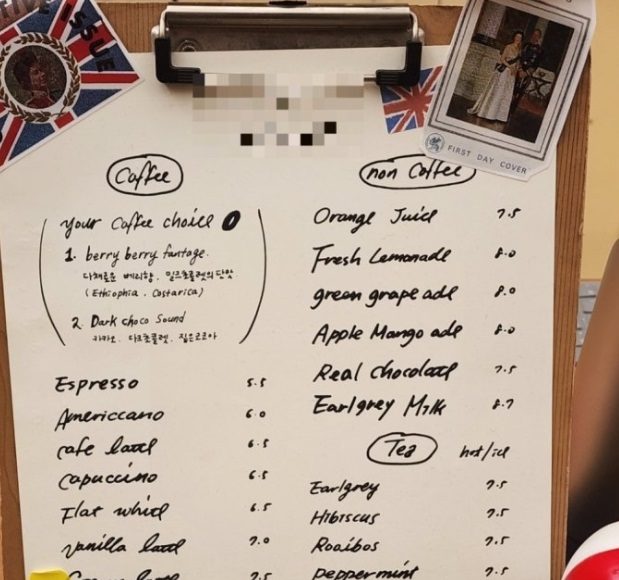 ISSUE
FIRST DAY COVER
Coffee
your Coffee choice
1. berry berry fantage.
다채로운 베리향, 밀크초콜렛의 단맛
(Ethiophia, Costarica)
2. Dark choco Sound
카카오, 다크초콜렛, 짙은코코아
Espresso 5.5
Americcano 6.0
cafe latte 6.5
Capuccino 6.5
Flat white 6.5
Vanilla latte 7.0
7.5
non Coffee
Orange Juice 7.5
Fresh Lemonade 8.0
green grape ade 8.0
Apple Mango ade 8.0
Real chocolate 7.5
Earlgrey Milk 8.7
Tea hot/ice
Earlgrey 7.5
Hibiscus 7.5
Rooibos 7.5
peppermint 7.5